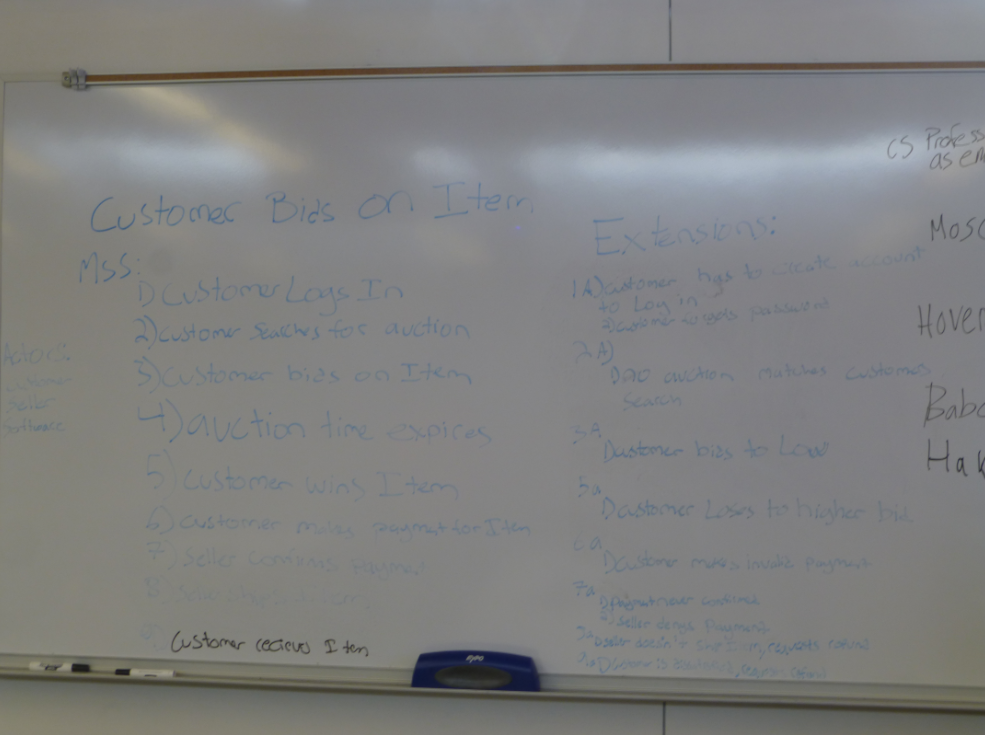 Customer Bids on Item
MSS:
1) Customer Logs In
2) customer searches for auction
3) customer bids on Item
4) auction time expires
5) customer wins Item
6) customer makes paymnt for Item
7) Seller confirms Payment
8) Seller Item
9) Customer recieves Item
Actors:
Customer
Seller
Software
Extensions:
1A) customer has to create account
to Log in
2) customer forgets password
2A)
1) no auction matches customer
search
3A
1) customer bids to Low
5a
1) customer Loses to higher bid
6a
1) Customer makes invalid payment
7a
1) Payment never confirmed
2) Seller denys payment
1) seller doesn't ship Item, requests refund
CS Profess
as em
Mosc
Hover
Babc
Hak
EXPO